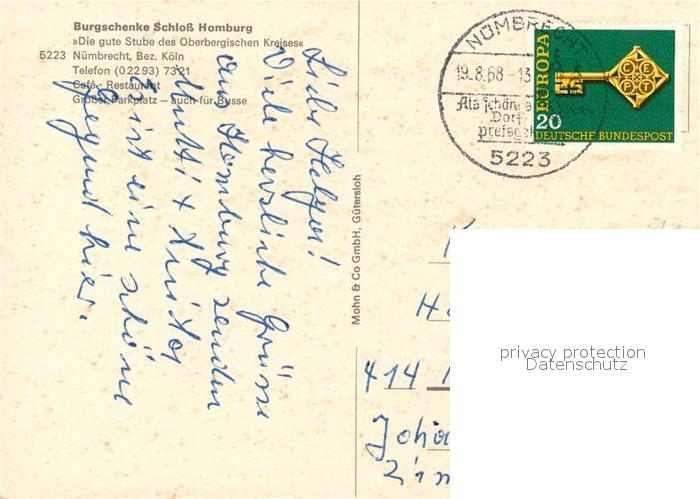 Burgschenke Schloß Homburg
»Die gute Stube des Oberbergischen Kreises«
5223 Nümbrecht, Bez. Köln
Telefon (02293) 7321
Café · Restaurant
Großer Parkplatz – auch für Busse
Lieber Holger!
Viele herzliche Grüsse
aus Homburg senden
Mutti +
Es ist eine schöne
Gegend hier.
Mohn & Co GmbH, Gütersloh
NÜMBRECHT
19.8.68-13
Als schönes
Dorf
5223
EUROPA
CEPT
20
DEUTSCHE BUNDESPOST
414
privacy protection
Datenschutz